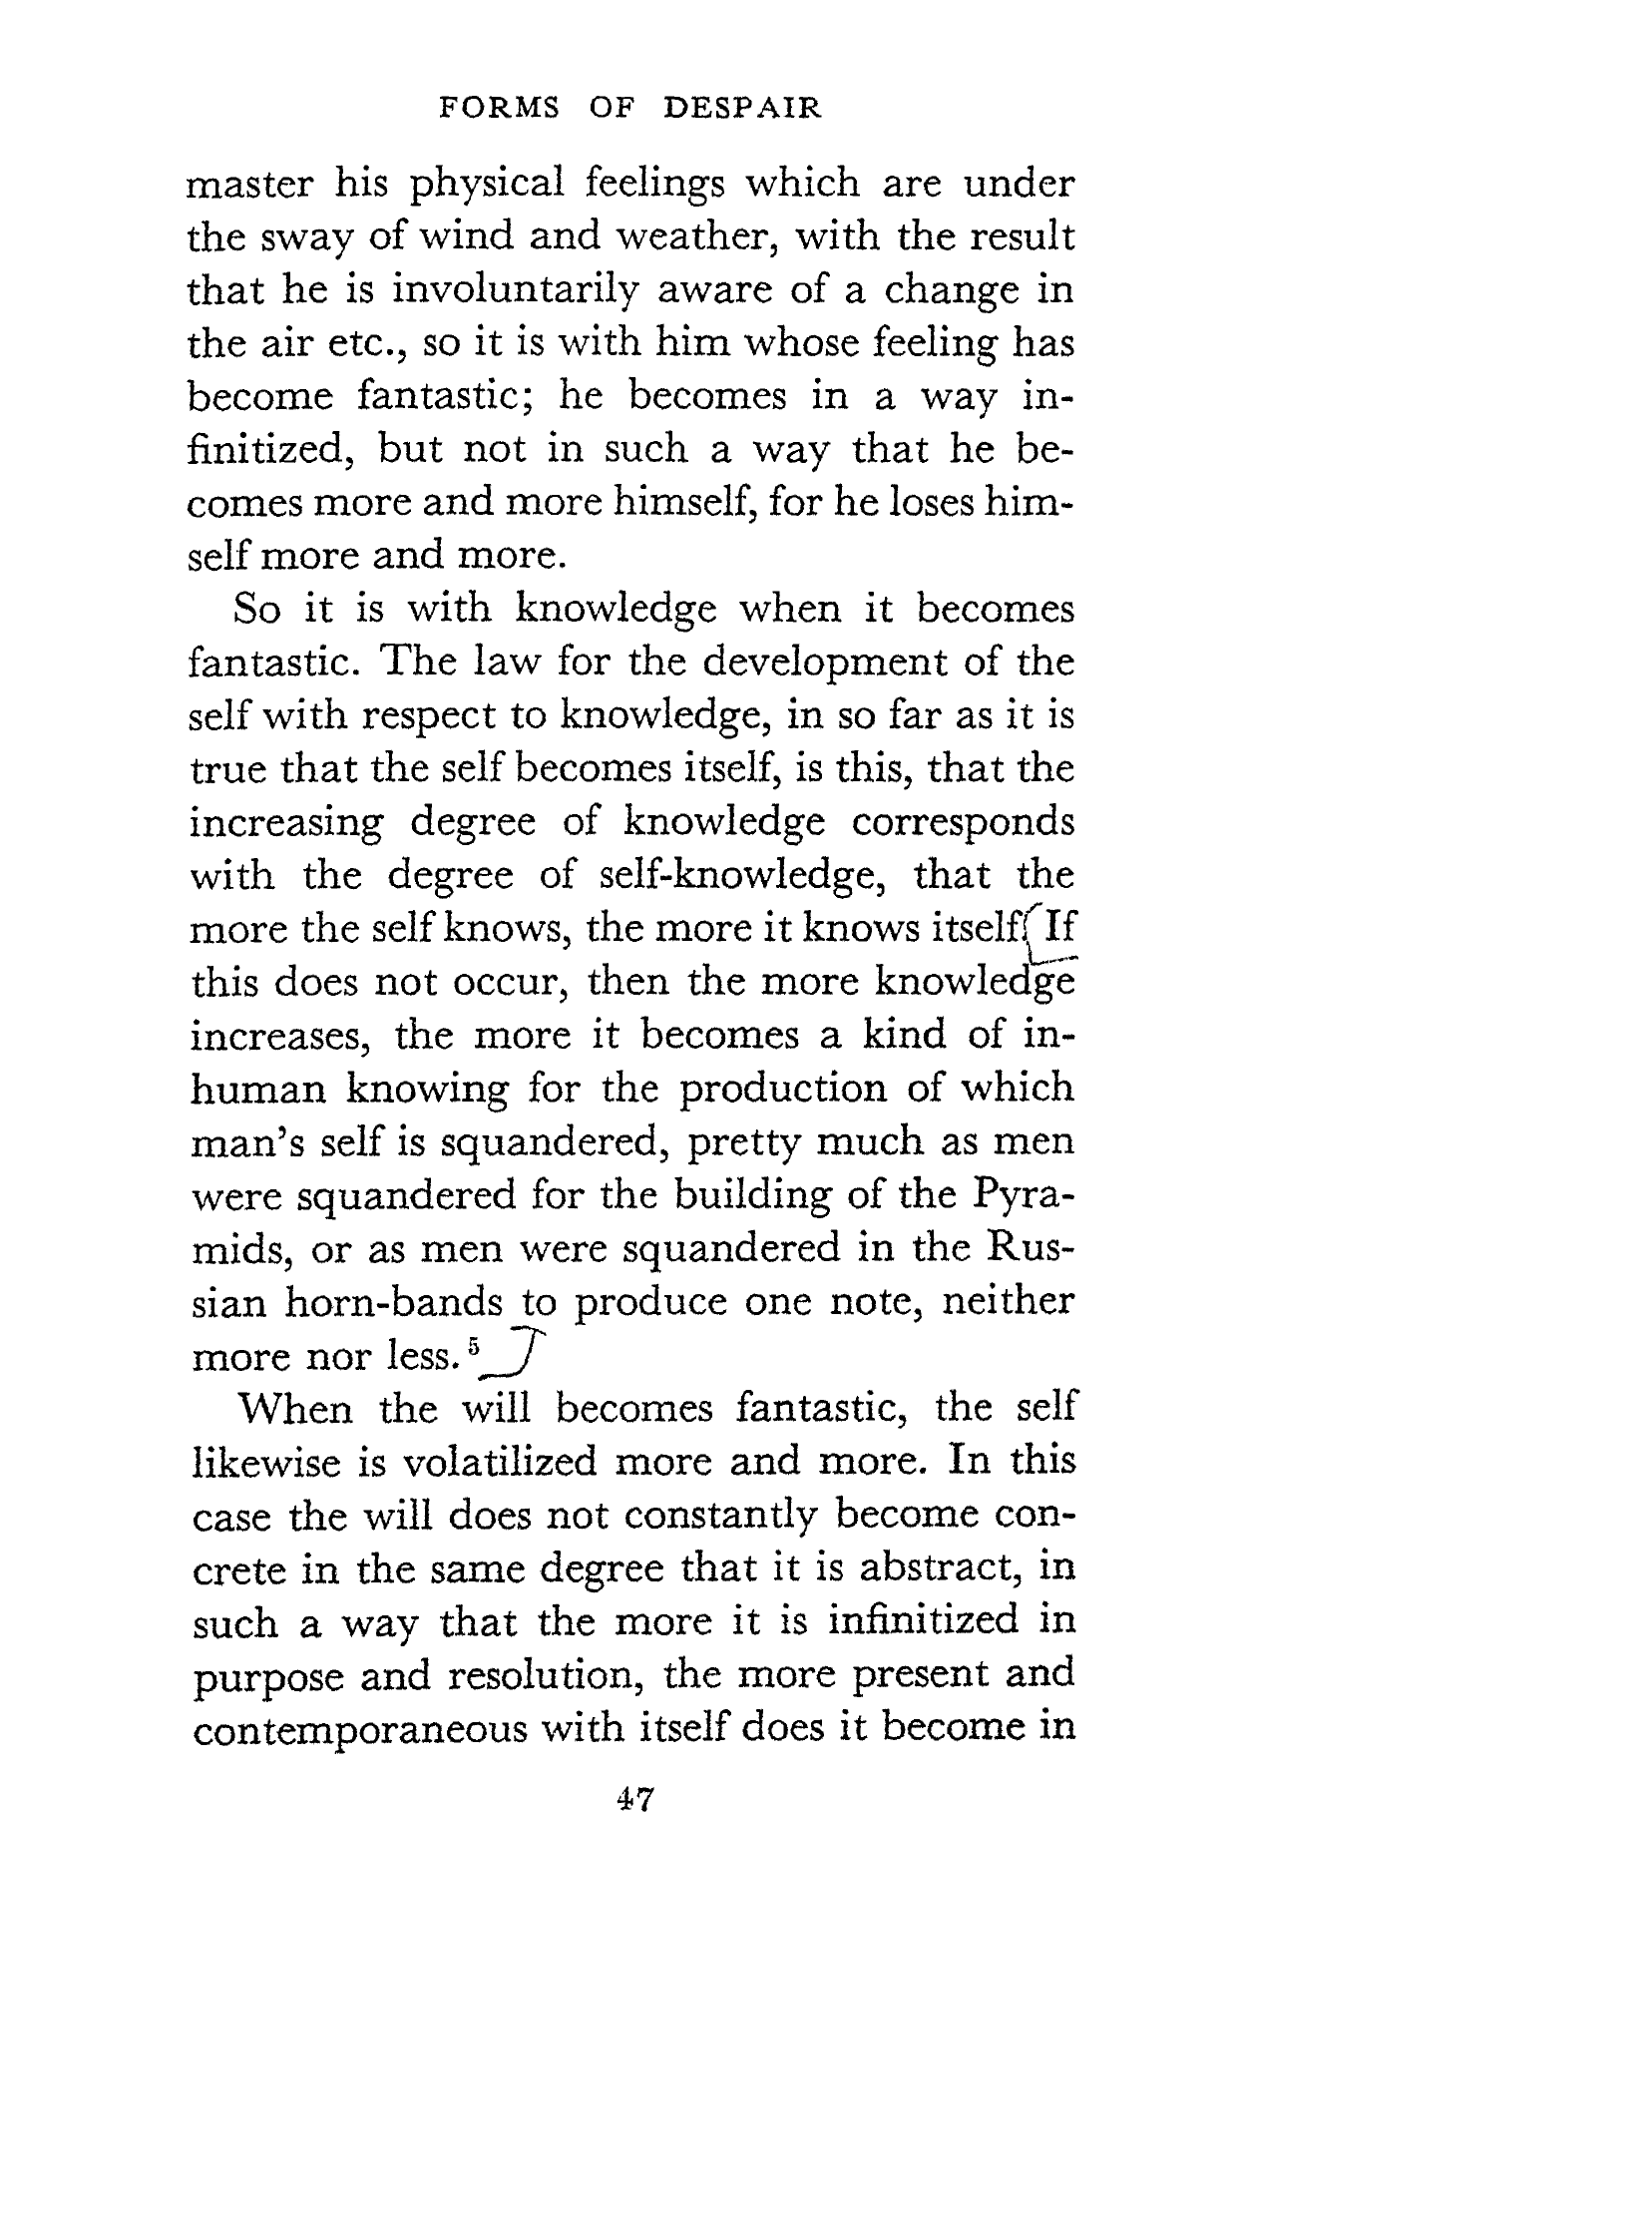 FORMS OF DESPAIR
master his physical feelings which are under
the sway of wind and weather, with the result
that he is involuntarily aware of a change in
the air etc., so it is with him whose feeling has
become fantastic; he becomes in a way in-
finitized, but not in such a way that he be-
comes more and more himself, for he loses him-
self more and more.
So it is with knowledge when it becomes
fantastic. The law for the development of the
self with respect to knowledge, in so far as it is
true that the self becomes itself, is this, that the
increasing degree of knowledge corresponds
with the degree of self-knowledge, that the
more the self knows, the more it knows itself. If
this does not occur, then the more knowledge
increases, the more it becomes a kind of in-
human knowing for the production of which
man's self is squandered, pretty much as men
were squandered for the building of the Pyra-
mids, or as men were squandered in the Rus-
sian horn-bands to produce one note, neither
more nor less.⁵
When the will becomes fantastic, the self
likewise is volatilized more and more. In this
case the will does not constantly become con-
crete in the same degree that it is abstract, in
such a way that the more it is infinitized in
purpose and resolution, the more present and
contemporaneous with itself does it become in
47